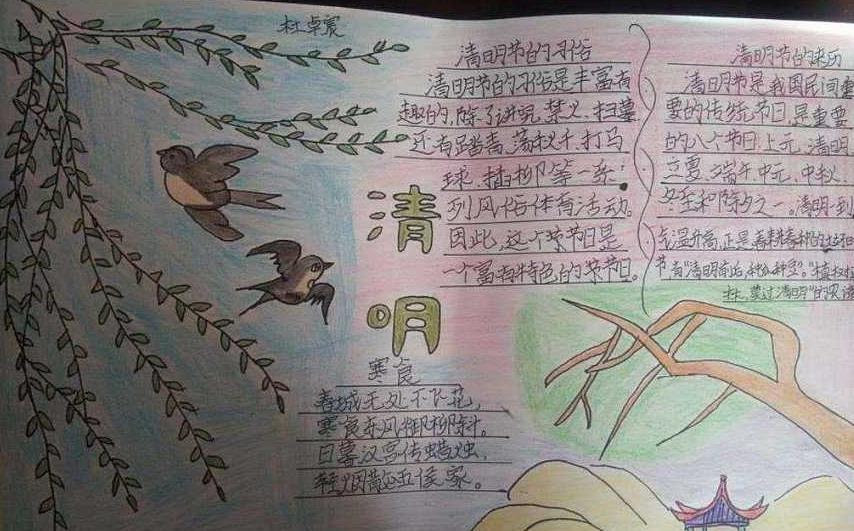 杜卓宸
清明节的习俗
清明节的习俗是丰富有
趣的,除了讲究禁火、扫墓
还有踏青、荡秋千、打马
球、插柳等一系
列风俗体育活动。
因此,这个节日是
一个富有特色的节日。
清明节的来历
清明节是我国民间重
要的传统节日,是重要
的八个节日:上元、清明
立夏、端午、中元、中秋
冬至和除夕之一。清明一到
气温升高,正是春耕春种的
节,有"清明前后,种瓜种豆"。"植树
过清明"的
清
明
寒食
春城无处不飞花,
寒食东风御柳斜。
日暮汉宫传蜡烛,
轻烟散五侯家。